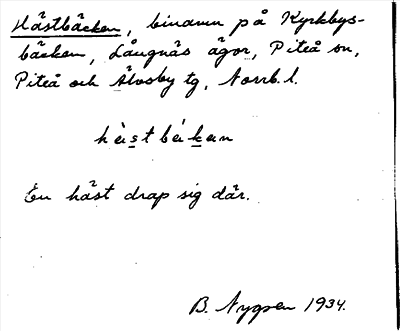 Hästbäcken, binamn på Kyrkbys-
bäcken, Långnäs ägor, Piteå sn,
Piteå och Älvsby tg, Norrb. l.
hàstbɛ́kan
En häst drap sig där.
B. Nygren 1934.